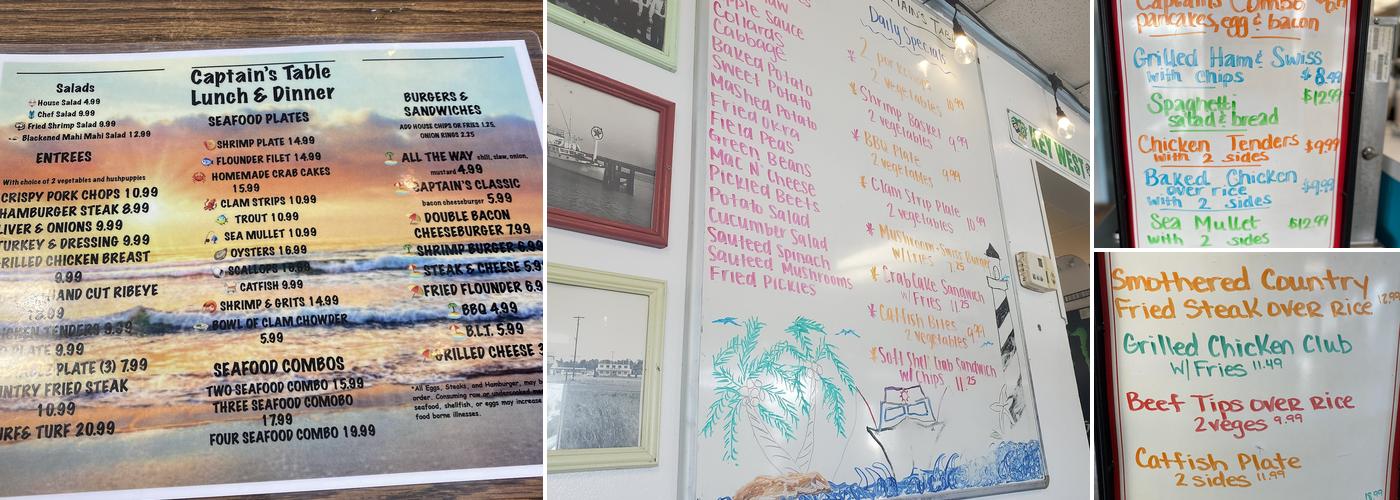 Captain's Table
Lunch & Dinner
Salads
House Salad 4.99
Chef Salad 9.99
Fried Shrimp Salad 9.99
Blackened Mahi Mahi Salad 12.99
ENTREES
With choice of 2 vegetables and hushpuppies
CRISPY PORK CHOPS 10.99
HAMBURGER STEAK 8.99
LIVER & ONIONS 9.99
TURKEY & DRESSING 9.99
GRILLED CHICKEN BREAST
9.99
HAND CUT RIBEYE
CHICKEN TENDERS 9.99
PLATE 9.99
PLATE (3) 7.99
COUNTRY FRIED STEAK
10.99
SURF& TURF 20.99
SEAFOOD PLATES
SHRIMP PLATE 14.99
FLOUNDER FILET 14.99
HOMEMADE CRAB CAKES
15.99
CLAM STRIPS 10.99
TROUT 10.99
SEA MULLET 10.99
OYSTERS 16.99
SCALLOPS 16.99
CATFISH 9.99
SHRIMP & GRITS 14.99
BOWL OF CLAM CHOWDER
5.99
SEAFOOD COMBOS
TWO SEAFOOD COMBO 15.99
THREE SEAFOOD COMOBO
17.99
FOUR SEAFOOD COMBO 19.99
BURGERS &
SANDWICHES
ADD HOUSE CHIPS OR FRIES 1.25,
ONION RINGS 2.25
ALL THE WAY chili, slaw, onion,
mustard 4.99
CAPTAIN'S CLASSIC
bacon cheeseburger 5.99
DOUBLE BACON
CHEESEBURGER 7.99
SHRIMP BURGER 6.99
STEAK & CHEESE 5.9
FRIED FLOUNDER 6.9
BBQ 4.99
B.L.T. 5.99
GRILLED CHEESE 3
*All Eggs, Steaks, and Hamburger, may b
order. Consuming raw or undercooked me
seafood, shellfish, or eggs may increase
food borne illnesses.
Apple Sauce
Collards
Cabbage
Baked Potato
Sweet Potato
Mashed Potato
Fried Okra
Field Peas
Green Beans
Mac N' Cheese
Pickled Beets
Potato Salad
Cucumber Salad
Sauteed Spinach
Sauteed Mushrooms
Fried Pickles
Daily Specials
2 porkchops
2 vegetables 10.99
* Shrimp Basket
2 vegetables 9.99
* BBQ Plate
2 vegetables 9.99
* Clam Strip Plate
2 vegetables 10.99
* Mushroom-Swiss Burger
w/Fries 7.25
* Crab Cake Sandwich
w/Fries 11.25
* Catfish Bites
2 vegetables 9.99
* Soft Shell Crab Sandwich
w/ Chips 11.25
KEY WEST
Captains Combo
pancakes, egg & bacon
Grilled Ham & Swiss
with chips $8.49
Spaghetti $12.99
salad & bread
Chicken Tenders $9.99
with 2 sides
Baked Chicken
over rice $9.99
with 2 sides
Sea Mullet $12.99
with 2 sides
Smothered Country
Fried Steak over Rice
Grilled Chicken Club
w/ Fries 11.49
Beef Tips over Rice
2 veges 9.99
Catfish Plate
2 sides 11.99